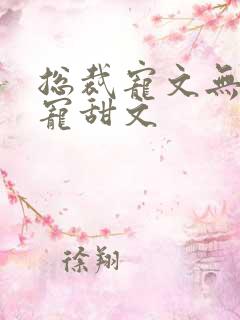 总裁寵文無
寵甜文
徐翔